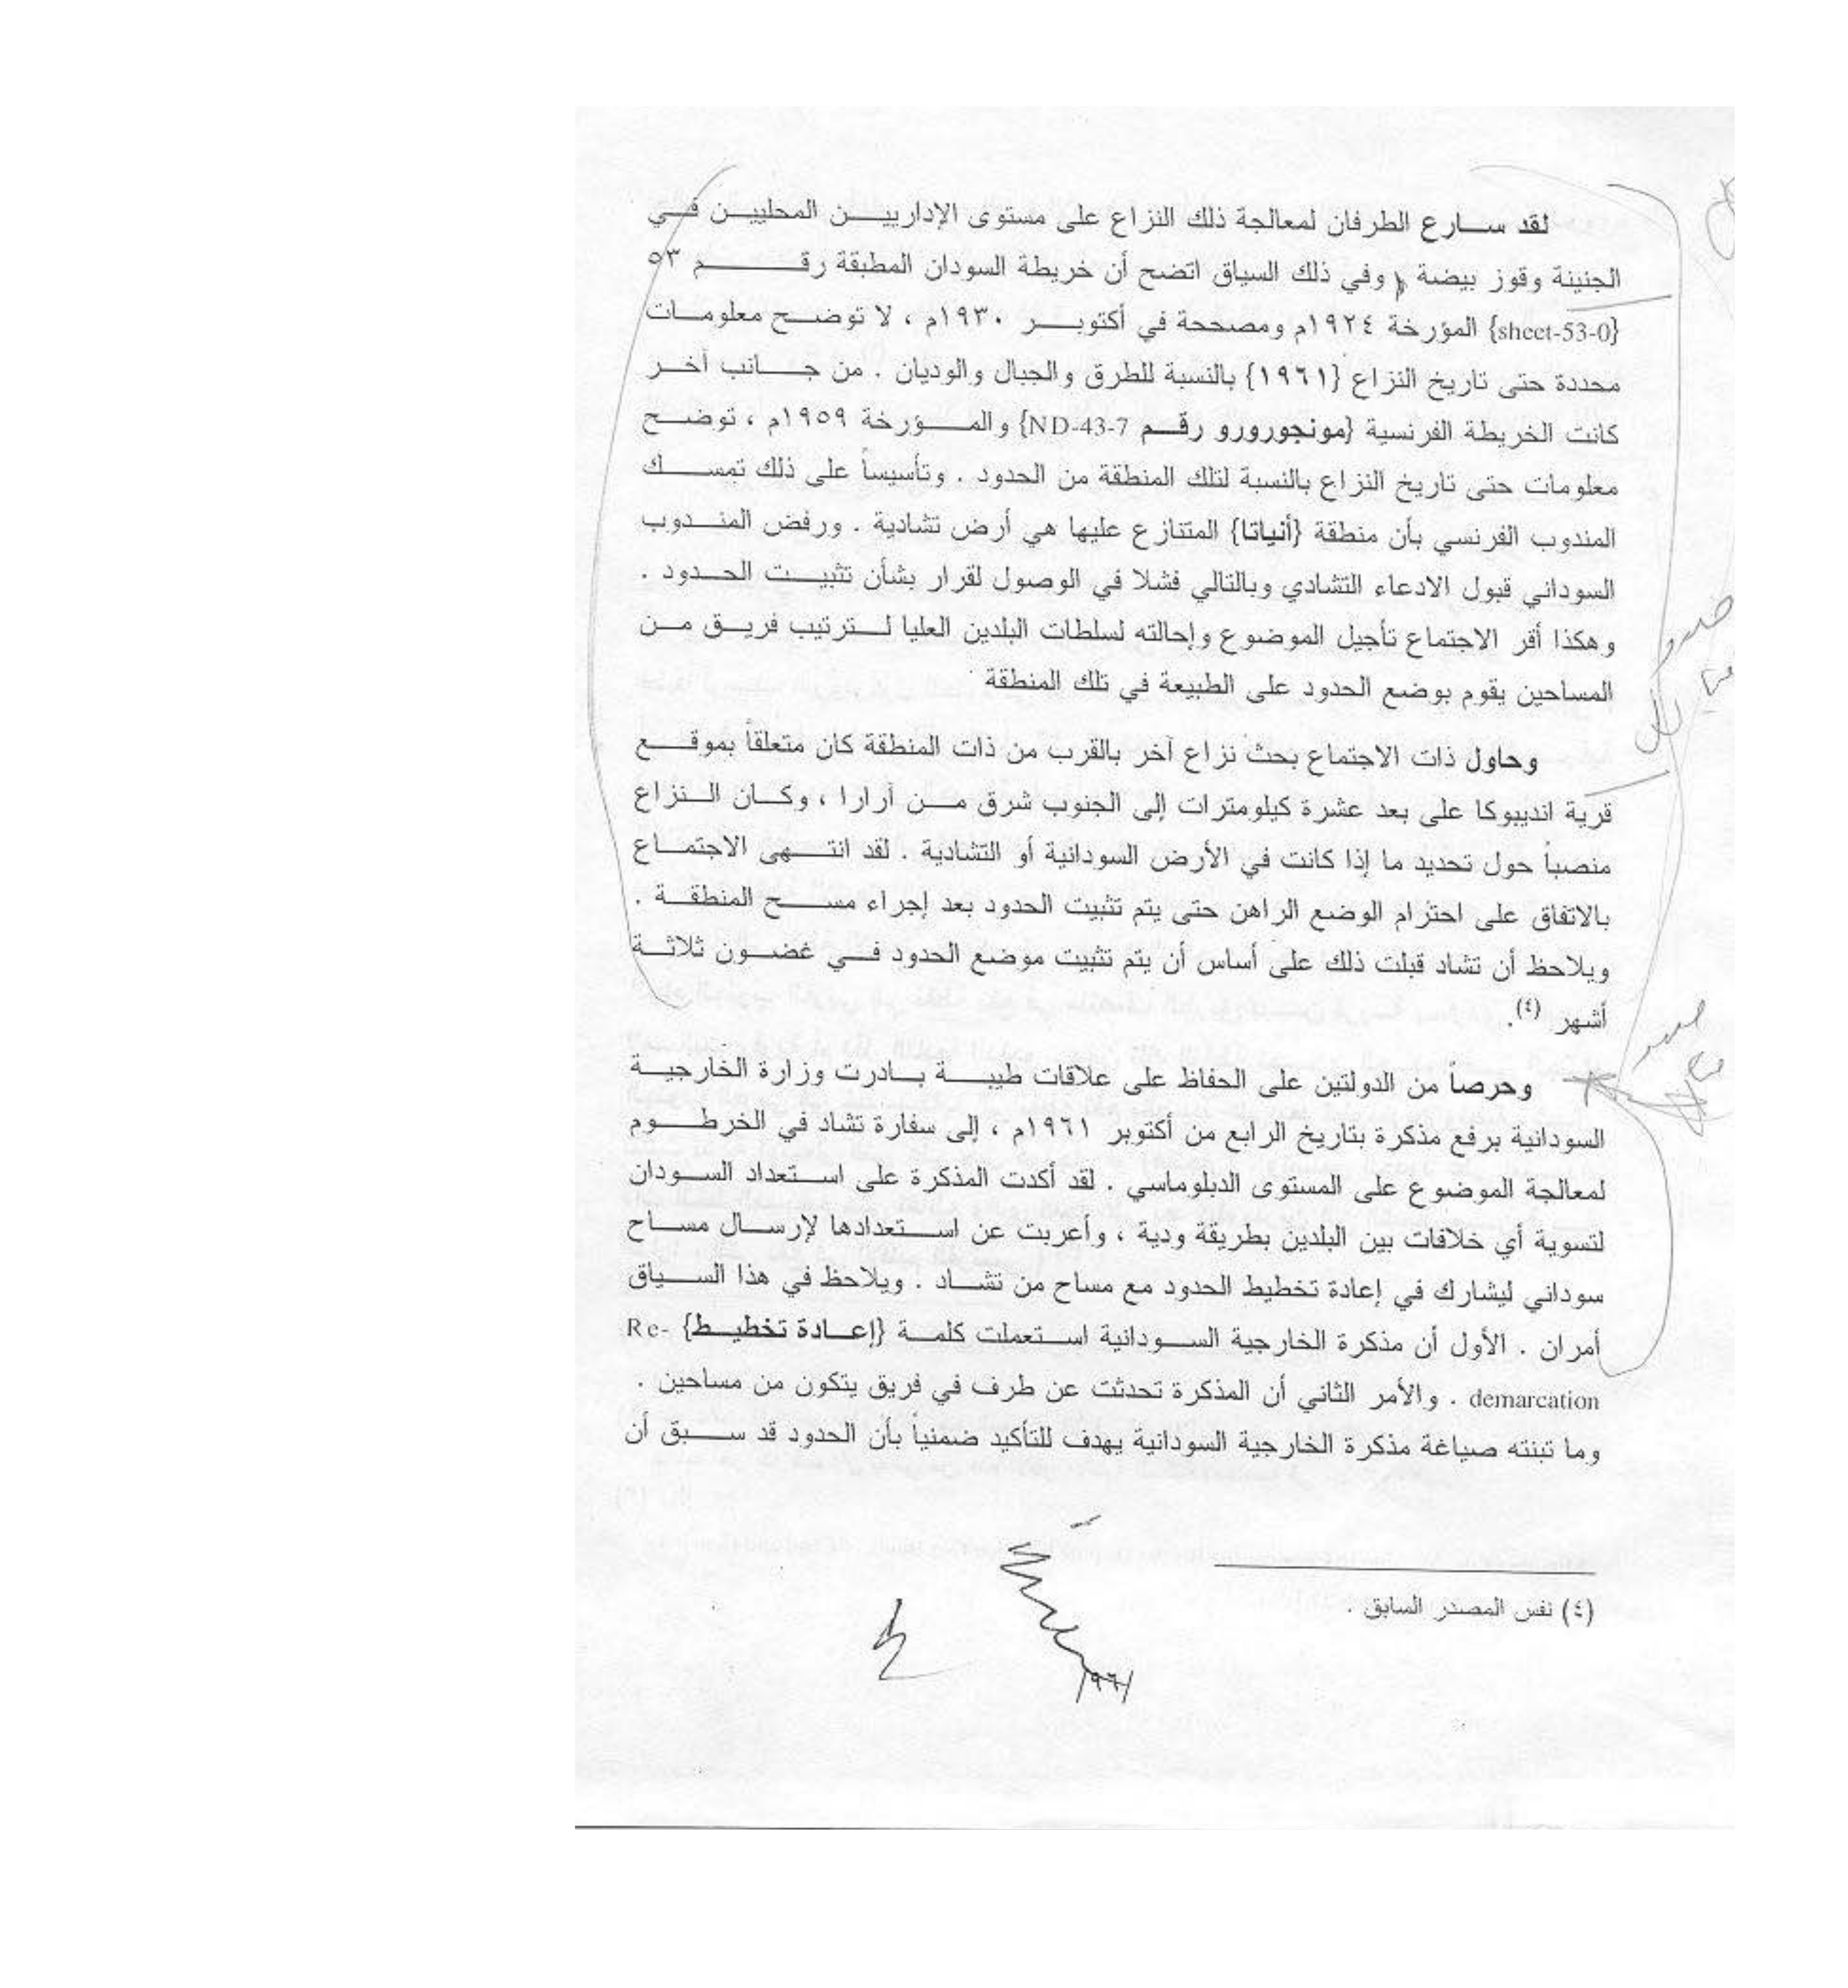 لقد سارع الطرفان لمعالجة ذلك النزاع على مستوى الإداريين المحليين في
الجنينة وقوز بيضة ، وفي ذلك السياق اتضح أن خريطة السودان المطبقة رقم ٥٣
{sheet-53-0} المؤرخة ١٩٢٤م ومصححة في أكتوبر ١٩٣٠م ، لا توضح معلومات
محددة حتى تاريخ النزاع {١٩٦١} بالنسبة للطرق والجبال والوديان . من جانب آخر
كانت الخريطة الفرنسية {مونجورورو رقم ND-43-7} والمؤرخة ١٩٥٩م ، توضح
معلومات حتى تاريخ النزاع بالنسبة لتلك المنطقة من الحدود . وتأسيساً على ذلك تمسك
المندوب الفرنسي بأن منطقة {أنياتا} المتنازع عليها هي أرض تشادية . ورفض المندوب
السوداني قبول الادعاء التشادي وبالتالي فشلا في الوصول لقرار بشأن تثبيت الحدود .
وهكذا أقر الاجتماع تأجيل الموضوع وإحالته لسلطات البلدين العليا لترتيب فريق من
المساحين يقوم بوضع الحدود على الطبيعة في تلك المنطقة
وحاول ذات الاجتماع بحث نزاع آخر بالقرب من ذات المنطقة كان متعلقاً بموقع
قرية انديبوكا على بعد عشرة كيلومترات إلى الجنوب شرق من آرارا ، وكان النزاع
منصباً حول تحديد ما إذا كانت في الأرض السودانية أو التشادية . لقد انتهى الاجتماع
بالاتفاق على احترام الوضع الراهن حتى يتم تثبيت الحدود بعد إجراء مسح المنطقة .
ويلاحظ أن تشاد قبلت ذلك على أساس أن يتم تثبيت موضع الحدود في غضون ثلاثة
أشهر (٤).
وحرصاً من الدولتين على الحفاظ على علاقات طيبة بادرت وزارة الخارجية
السودانية برفع مذكرة بتاريخ الرابع من أكتوبر ١٩٦١م ، إلى سفارة تشاد في الخرطوم
لمعالجة الموضوع على المستوى الدبلوماسي . لقد أكدت المذكرة على استعداد السودان
لتسوية أي خلافات بين البلدين بطريقة ودية ، وأعربت عن استعدادها لإرسال مساح
سوداني ليشارك في إعادة تخطيط الحدود مع مساح من تشاد . ويلاحظ في هذا السياق
أمران . الأول أن مذكرة الخارجية السودانية استعملت كلمة {إعادة تخطيط} Re-
demarcation . والأمر الثاني أن المذكرة تحدثت عن طرف في فريق يتكون من مساحين .
وما تبنته صياغة مذكرة الخارجية السودانية يهدف للتأكيد ضمنياً بأن الحدود قد سبق أن
(٤) نفس المصدر السابق .
١٩٦١